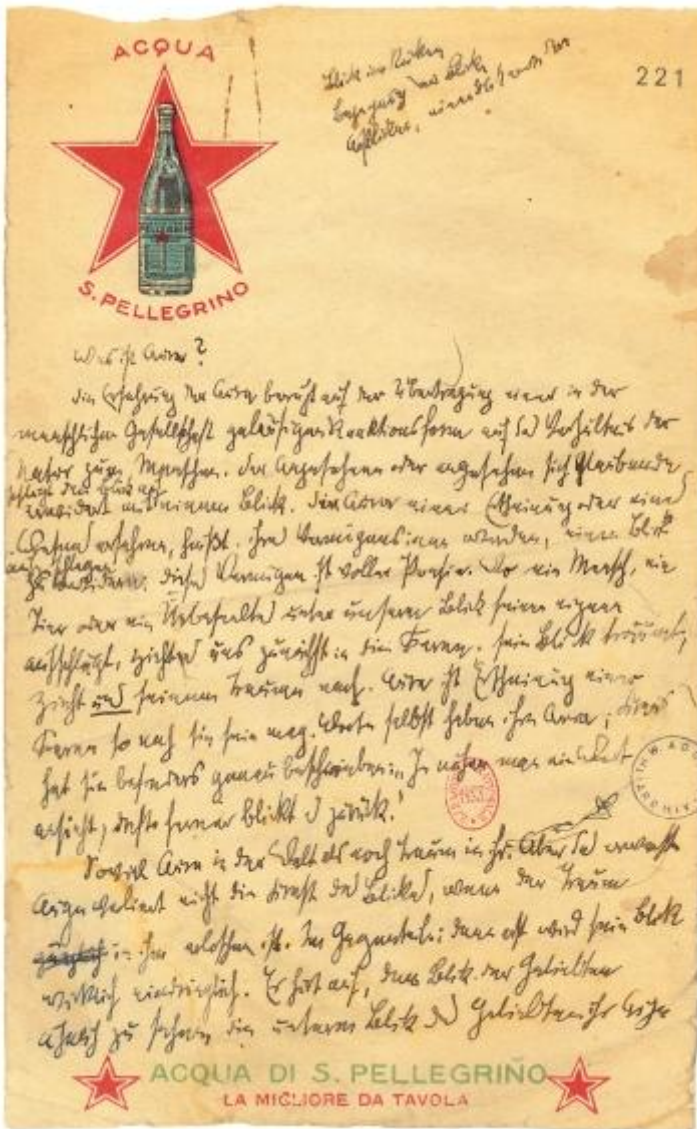 ACQUA
S. PELLEGRINO
221
Blick im Rücken
Begegnung der Blicke
Aufblicken,
Was ist Aura?
Die Erfahrung der Aura beruht auf der Übertragung einer in der
menschlichen Gesellschaft geläufigen Reaktionsform auf das Verhältnis der
Natur zum Menschen. Der Angesehene oder angesehen sich Glaubende
schlägt den Blick auf
erwidert mit einem Blick. Die Aura einer Erscheinung oder eines
Wesens erfahren, heißt, ihres Vermögens inne werden, einen Blick
aufzuschlagen
zu erwidern. Dieses Vermögen ist voller Poesie. Wo ein Mensch, ein
Tier oder ein Unbeseeltes unter unserm Blick seinen eignen
aufschlägt, zieht es uns zunächst in die Ferne; sein Blick träumt,
zieht uns seinem Traume nach. Aura ist Erscheinung einer
Ferne so nah sie sein mag. Worte selbst haben ihre Aura; Kraus
hat sie besonders genau beschrieben: „Je näher man ein Wort
ansieht, desto ferner blickt es zurück."
Soviel Aura in der Welt als noch Traum in ihr. Aber das erwachte
Auge verlernt nicht die Kunst des Blicks, wenn der Traum
in ihm erloschen ist. Im Gegenteil: dann erst wird sein Blick
wirklich eindringlich. Er hört auf, dem Blick der Geliebten
ähnlich zu sehen die unterm Blick des Geliebten ihr Auge
ACQUA DI S. PELLEGRINO
LA MIGLIORE DA TAVOLA